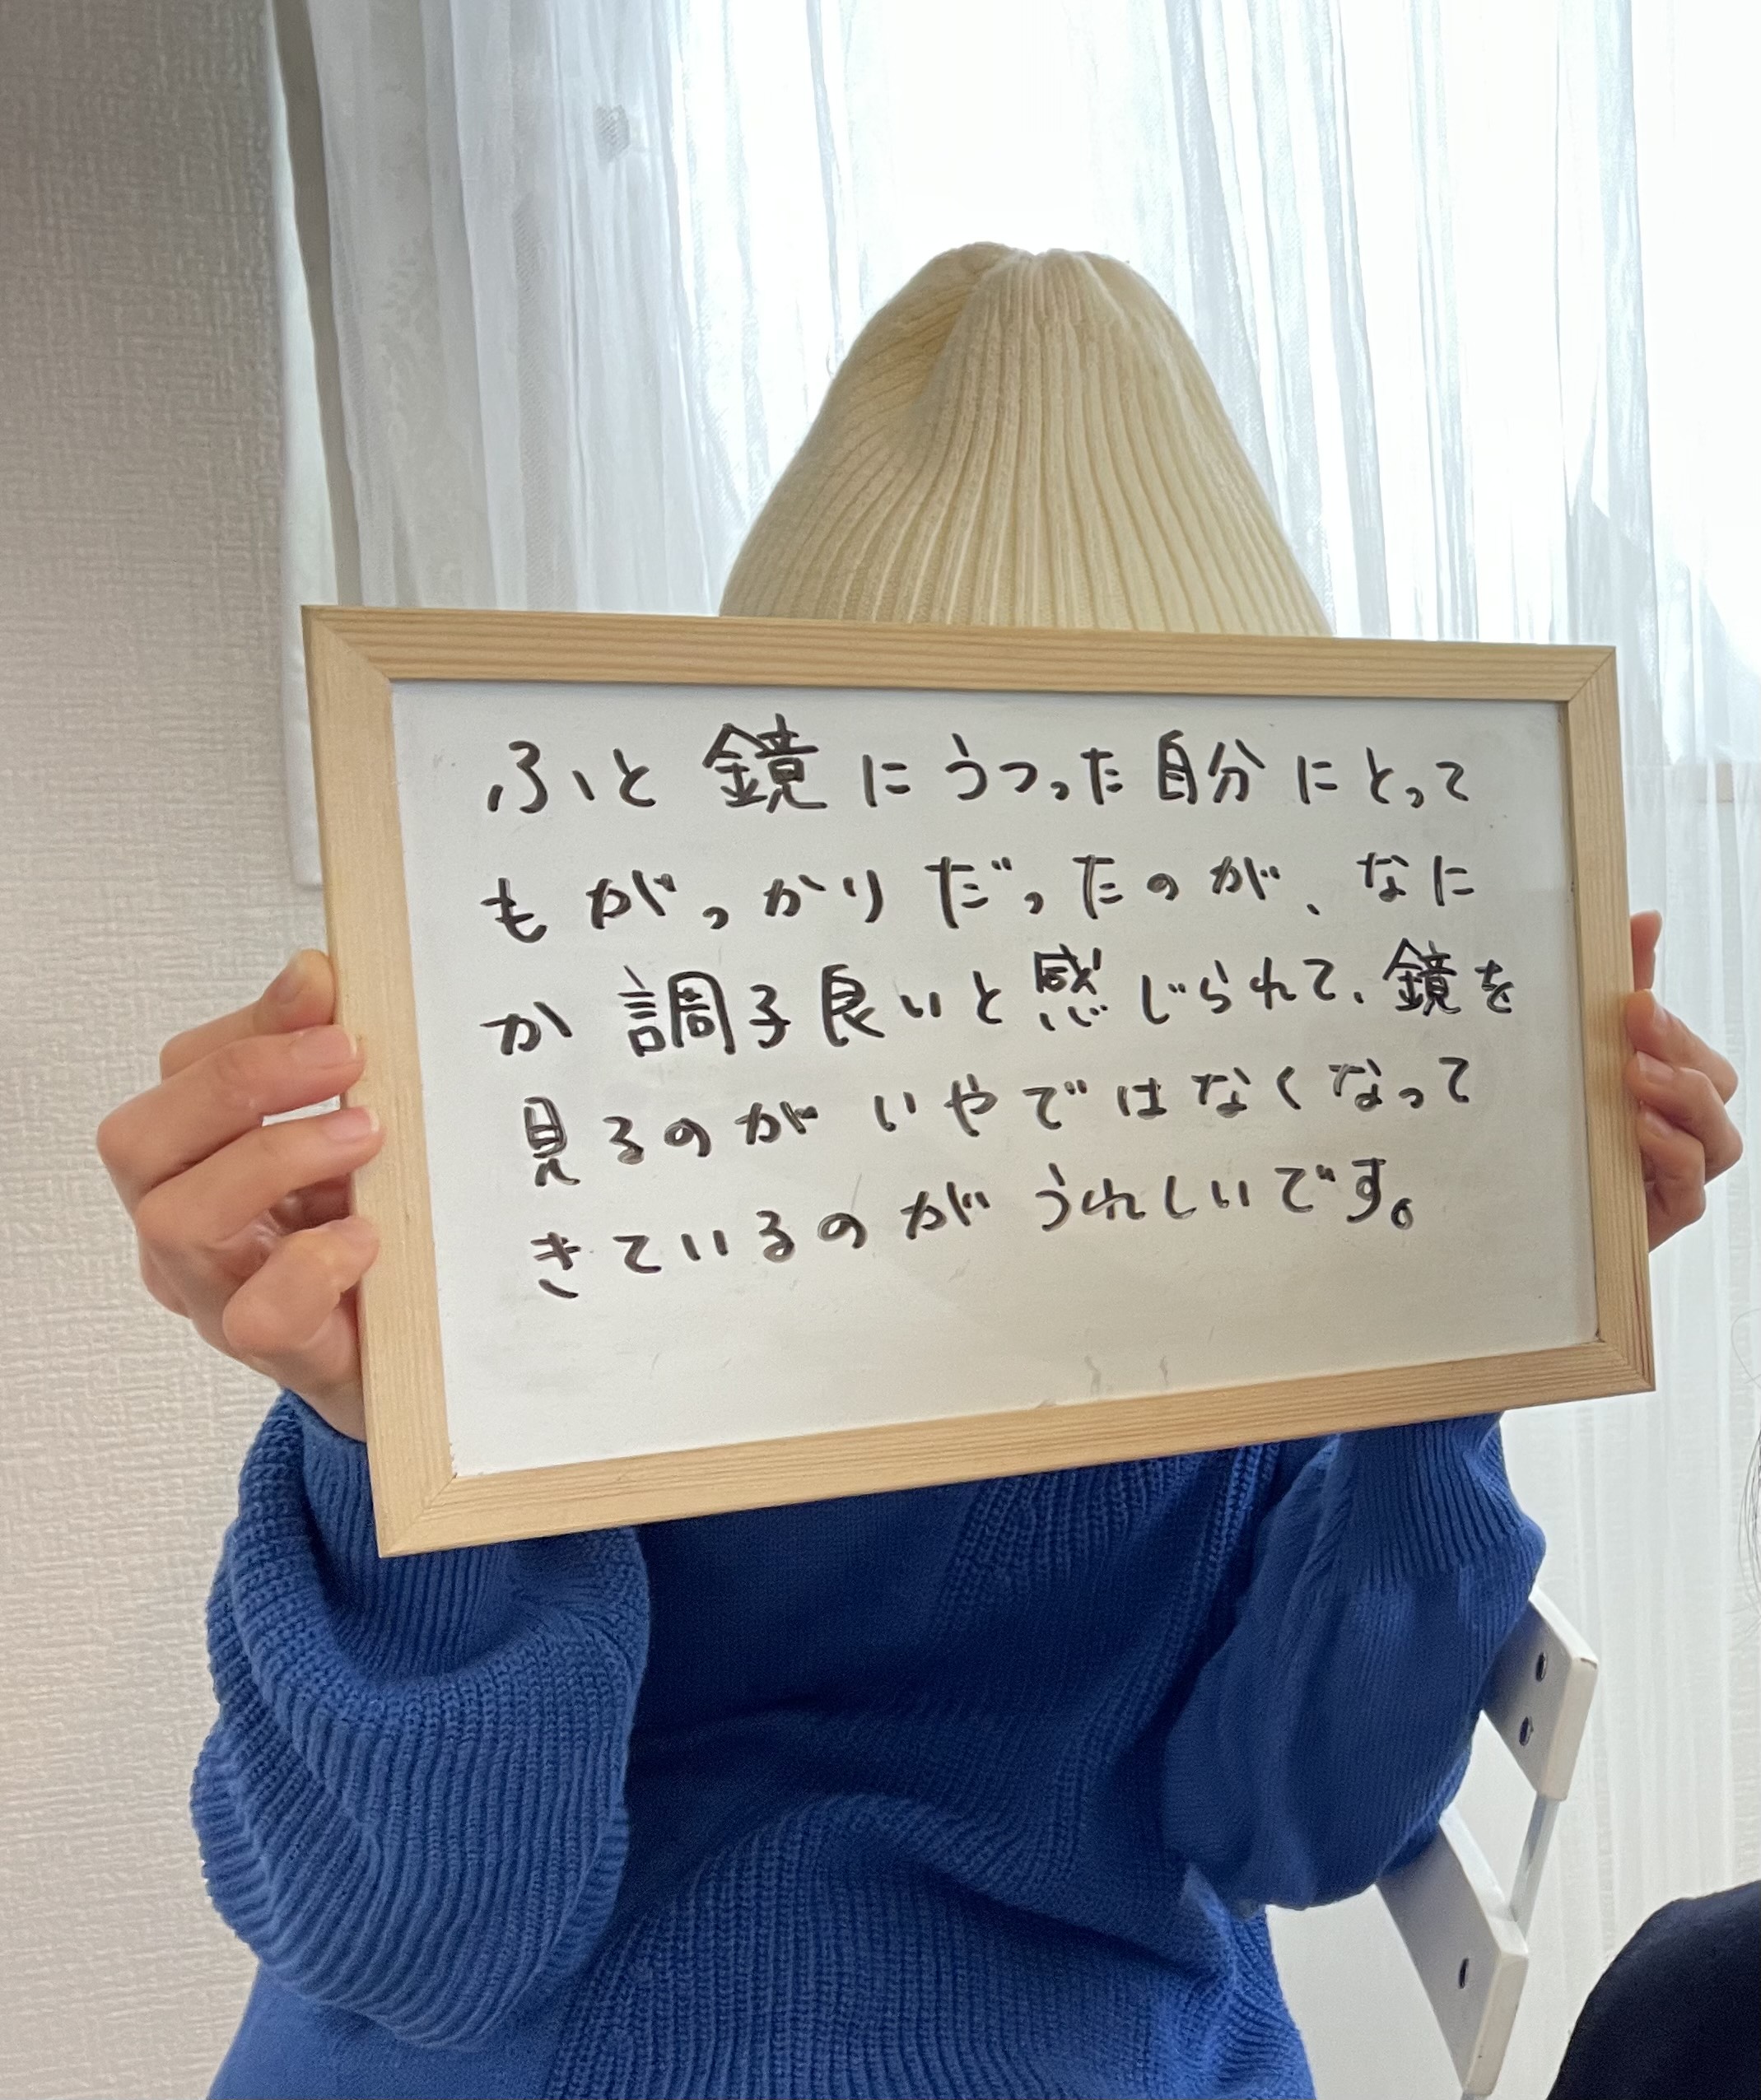 ふと鏡にうつった自分にとって
もがっかりだったのが、なに
か調子良いと感じられて、鏡を
見るのがいやではなくなって
きているのがうれしいです。